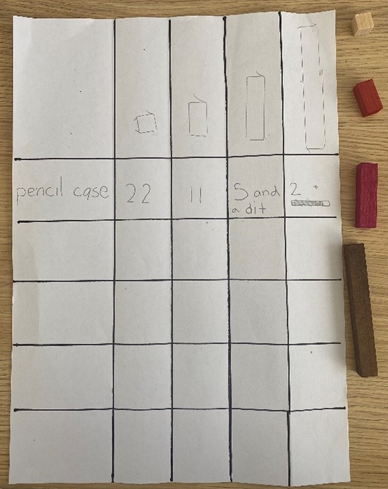 pencil case 22 11 5 and 2
a dit